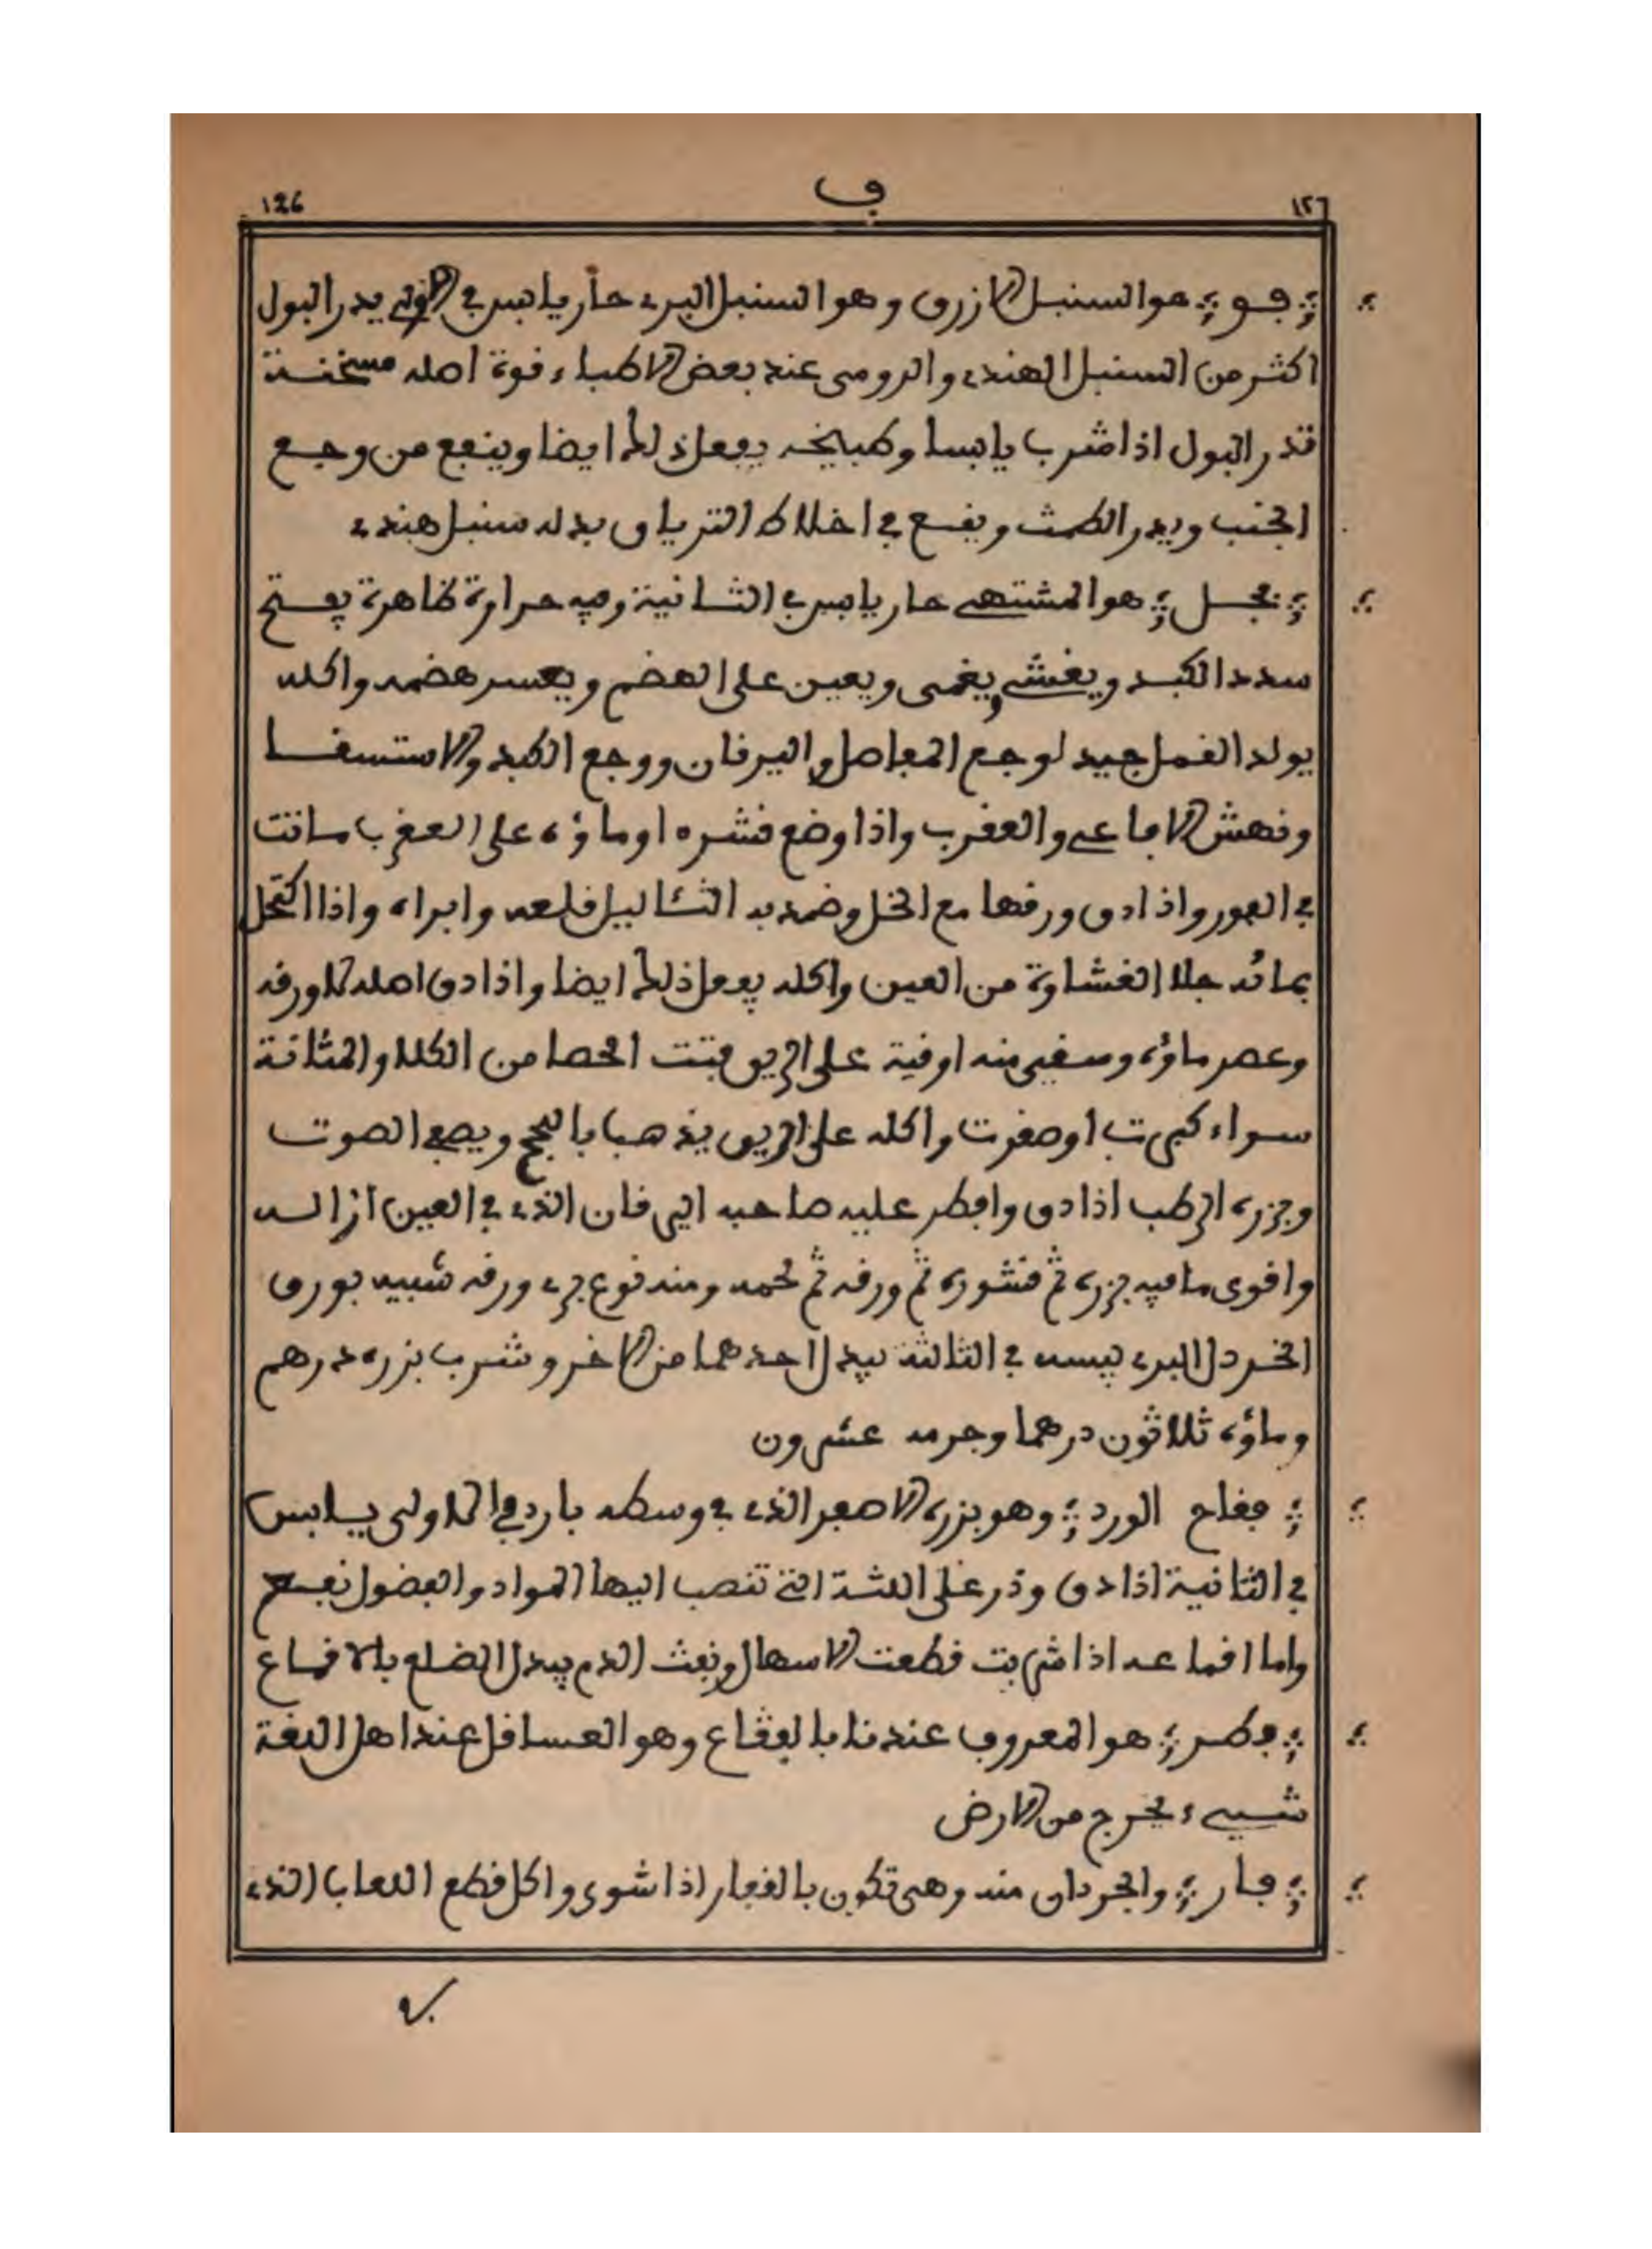 126 ف ١٢٦
فو هو السنبل الازرق وهو السنبل البري حار يابس في الاولى يدر البول
اكثر من السنبل الهندي والرومي عند بعض الاطباء قوة اصله مسخنة
تدر البول اذا شرب يابسا وطبيخه يفعل ذلك ايضا وينفع من وجع
الجنب ويدر الطمث ويقع في اخلاط الترياق بدله سنبل هندي
فجل هو المشتهى حار يابس في الثانية وفيه حرارة ظاهرة يفتح
سدد الكبد ويغشي ويغمى ويعين على الهضم ويعسر هضمه واكله
يولد القمل جيد لوجع المفاصل واليرقان ووجع الكبد والاستسقا
ونهش الافاعي والعقرب واذا وضع قشره او ماؤه على العقرب ماتت
في الفور واذا دق ورقها مع الخل وضمد به الثئاليل قلعه وابراه واذا اكتحل
بمائه جلا الغشاوة من العين واكله يفعل ذلك ايضا واذا دق اصله بلا ورقه
وعصر ماؤه وسقي منه اوقية على الريق فتت الحصا من الكلا والمثانة
سواء كبرت او صغرت واكله على الريق يذهب بالبحح ويصفي الصوت
وجزره الرطب اذا دق وافطر عليه صاحب اليرقان الذي في العين ازاله
واقوى ما فيه جزره ثم قشوره ثم ورقه ثم لحمه ومنه نوع بري ورقه شبيه بورق
الخردل البري يبسه في الثالثة يبدل احدهما من الاخر وشرب بزره درهم
وماؤه ثلاثون درهما وجرمه عشرون
فقاح الورد وهو بزره الاصفر الذي في وسطه بارد في الاولى يابس
في الثانية اذا دق وذر على اللثة التي تنصب اليها المواد والفضول نفع
واما اقماعه اذا شربت قطعت الاسهال ونفث الدم يبدل الضلع بالاقماع
فطر هو المعروف عندنا بالفقاع وهو العساقل عند اهل اللغة
شيء يخرج من الارض
فار والجردان منه وهي تكون بالقفار اذا شوي واكل قطع اللعاب الذي